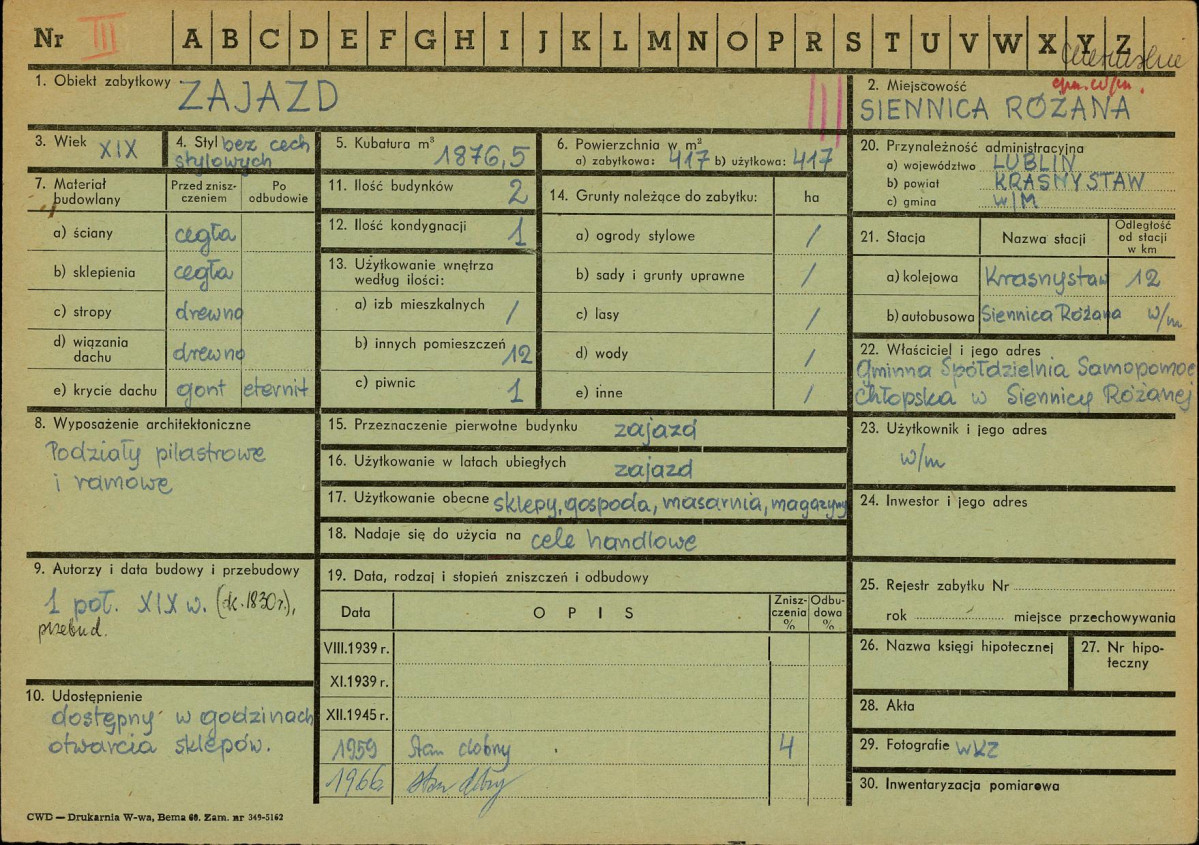 Nr III A B C D E F G H I J K L M N O P R S T U V W X Y Z
1. Obiekt zabytkowy ZAJAZD
2. Miejscowość
SIENNICA RÓŻANA
3. Wiek XIX
4. Styl bez cech
stylowych
5. Kubatura m³ 1876,5
6. Powierzchnia w m²
a) zabytkowa: 417 b) użytkowa: 417
20. Przynależność administracyjna
a) województwo LUBLIN
b) powiat KRASNYSTAW
c) gmina w/M
7. Materiał
budowlany
Przed znisz-
czeniem
Po
odbudowie
a) ściany cegła
b) sklepienia cegła
c) stropy drewno
d) wiązania
dachu drewno
e) krycie dachu gont eternit
11. Ilość budynków 2
12. Ilość kondygnacji 1
13. Użytkowanie wnętrza
według ilości:
a) izb mieszkalnych /
b) innych pomieszczeń 12
c) piwnic 1
14. Grunty należące do zabytku: ha
a) ogrody stylowe /
b) sady i grunty uprawne /
c) lasy /
d) wody /
e) inne /
21. Stacja Nazwa stacji
Odległość
od stacji
w km
a) kolejowa Krasnystaw 12
b) autobusowa Siennica Różana w/m
22. Właściciel i jego adres
Gminna Spółdzielnia Samopomoc
Chłopska w Siennicy Różanej
8. Wyposażenie architektoniczne
Podziały pilastrowe
i ramowe
15. Przeznaczenie pierwotne budynku zajazd
16. Użytkowanie w latach ubiegłych zajazd
17. Użytkowanie obecne sklepy, gospoda, masarnia, magazyny
18. Nadaje się do użycia na cele handlowe
23. Użytkownik i jego adres
w/m
24. Inwestor i jego adres
9. Autorzy i data budowy i przebudowy
1 poł. XIX w. (ok. 1830 r.),
przebud.
10. Udostępnienie
dostępny w godzinach
otwarcia sklepów.
19. Data, rodzaj i stopień zniszczeń i odbudowy
Data OPIS
Znisz-
czenia
%
Odbu-
dowa
%
VIII.1939 r.
XI.1939 r.
XII.1945 r.
1959 Stan dobry 4
1966 stan dobry
25. Rejestr zabytku Nr
rok miejsce przechowywania
26. Nazwa księgi hipotecznej
27. Nr hipo-
teczny
28. Akta
29. Fotografie WKZ
30. Inwentaryzacja pomiarowa
CWD — Drukarnia W-wa, Bema 60. Zam. nr 349-5162